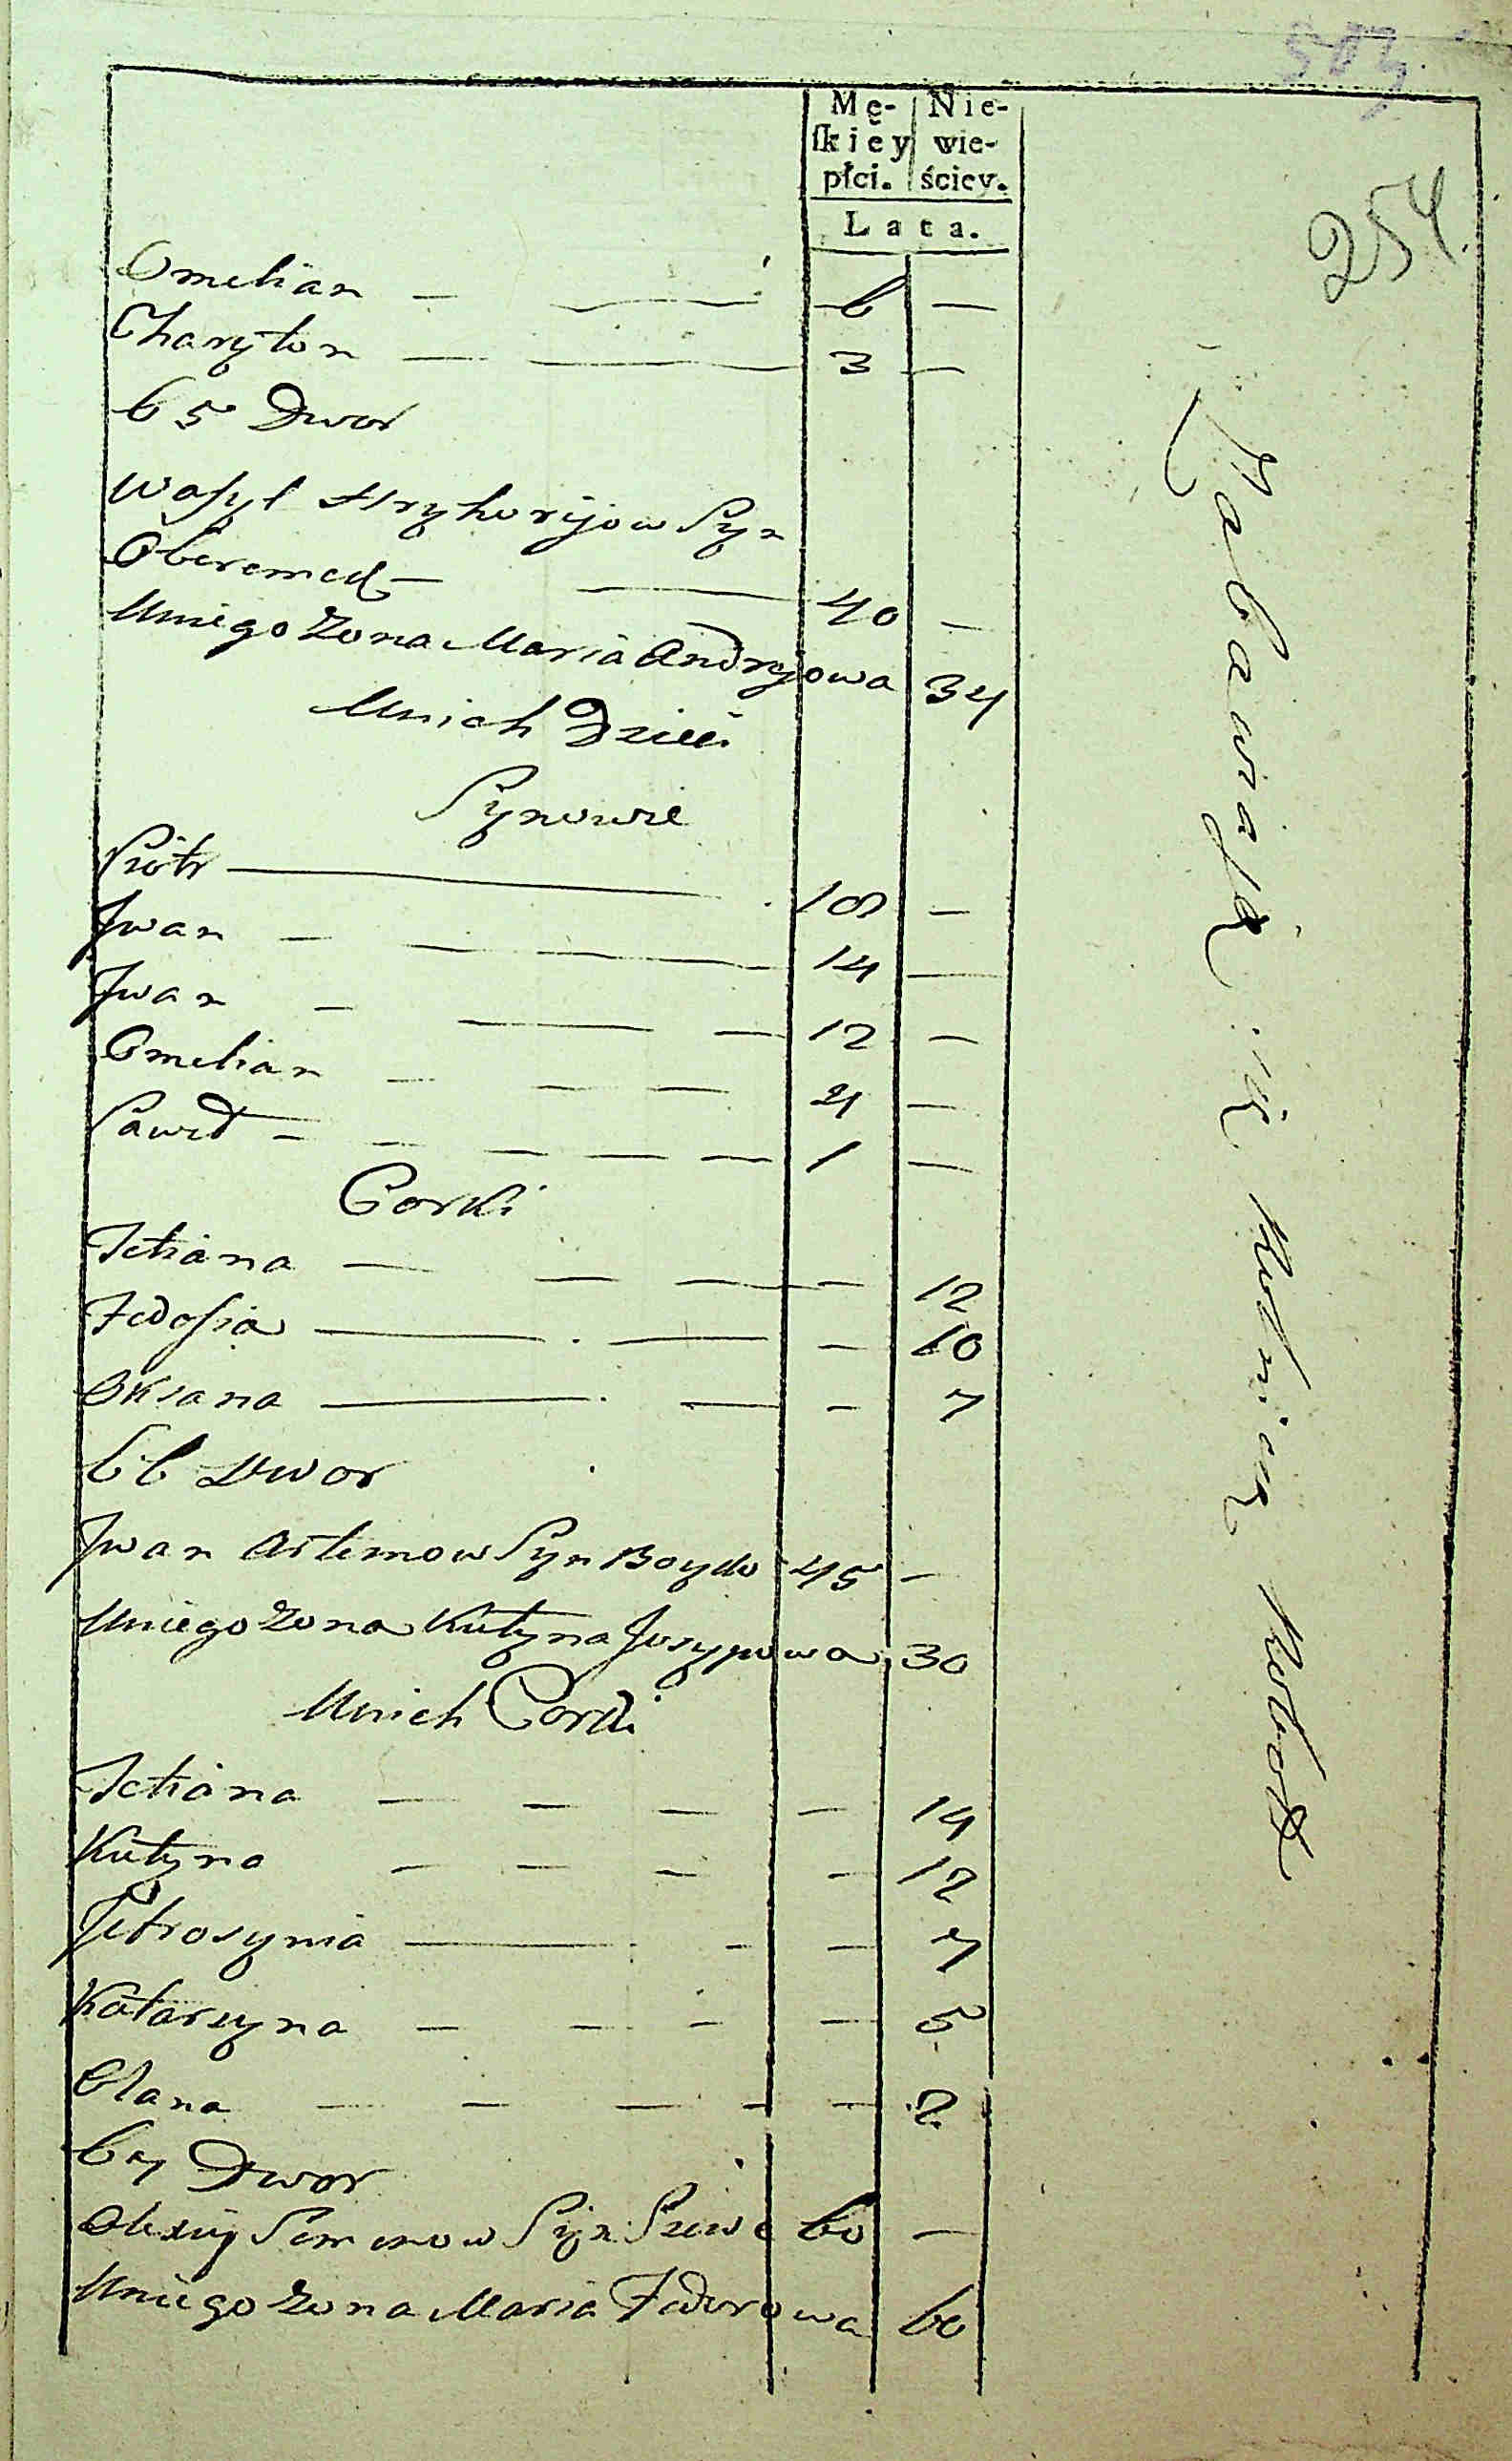 503
254.
Mę- Nie-
ſkiéy wie-
płci. ściey.
Lata.
Omelian — — 6 —
Charyton — — 3 —
65 Dwor
Wasyl Hryhorijow Syn
Oberemok — — 40 —
Uniego Zona Maria Andryjowa 34
Unich Dzieci
Synowie
Piotr — 18 —
Jwan — — — — 14 —
Jwan — — — 12 —
Omelian — — — 4 —
Paweł — — — — — 1 —
Corki
Tetiana — — — — 12
Fedosia — — — 10
Oksana — — — 7
66 Dwor
Jwan Artemow Syn Boyko 45 —
Uniego Zona Kulyna Josypowa 30
Unich Corki
Tetiana — — — — 14
Kulyna — — — — 12
Jefrosynia — — — 7
Katarzyna — — — — 5
Olana — — — — — 2
67 Dwor
Olexiy Semenow Syn 60 —
Uniego Zona Maria Fedorowa 60
Zabawiają się Rolniczą Robotą